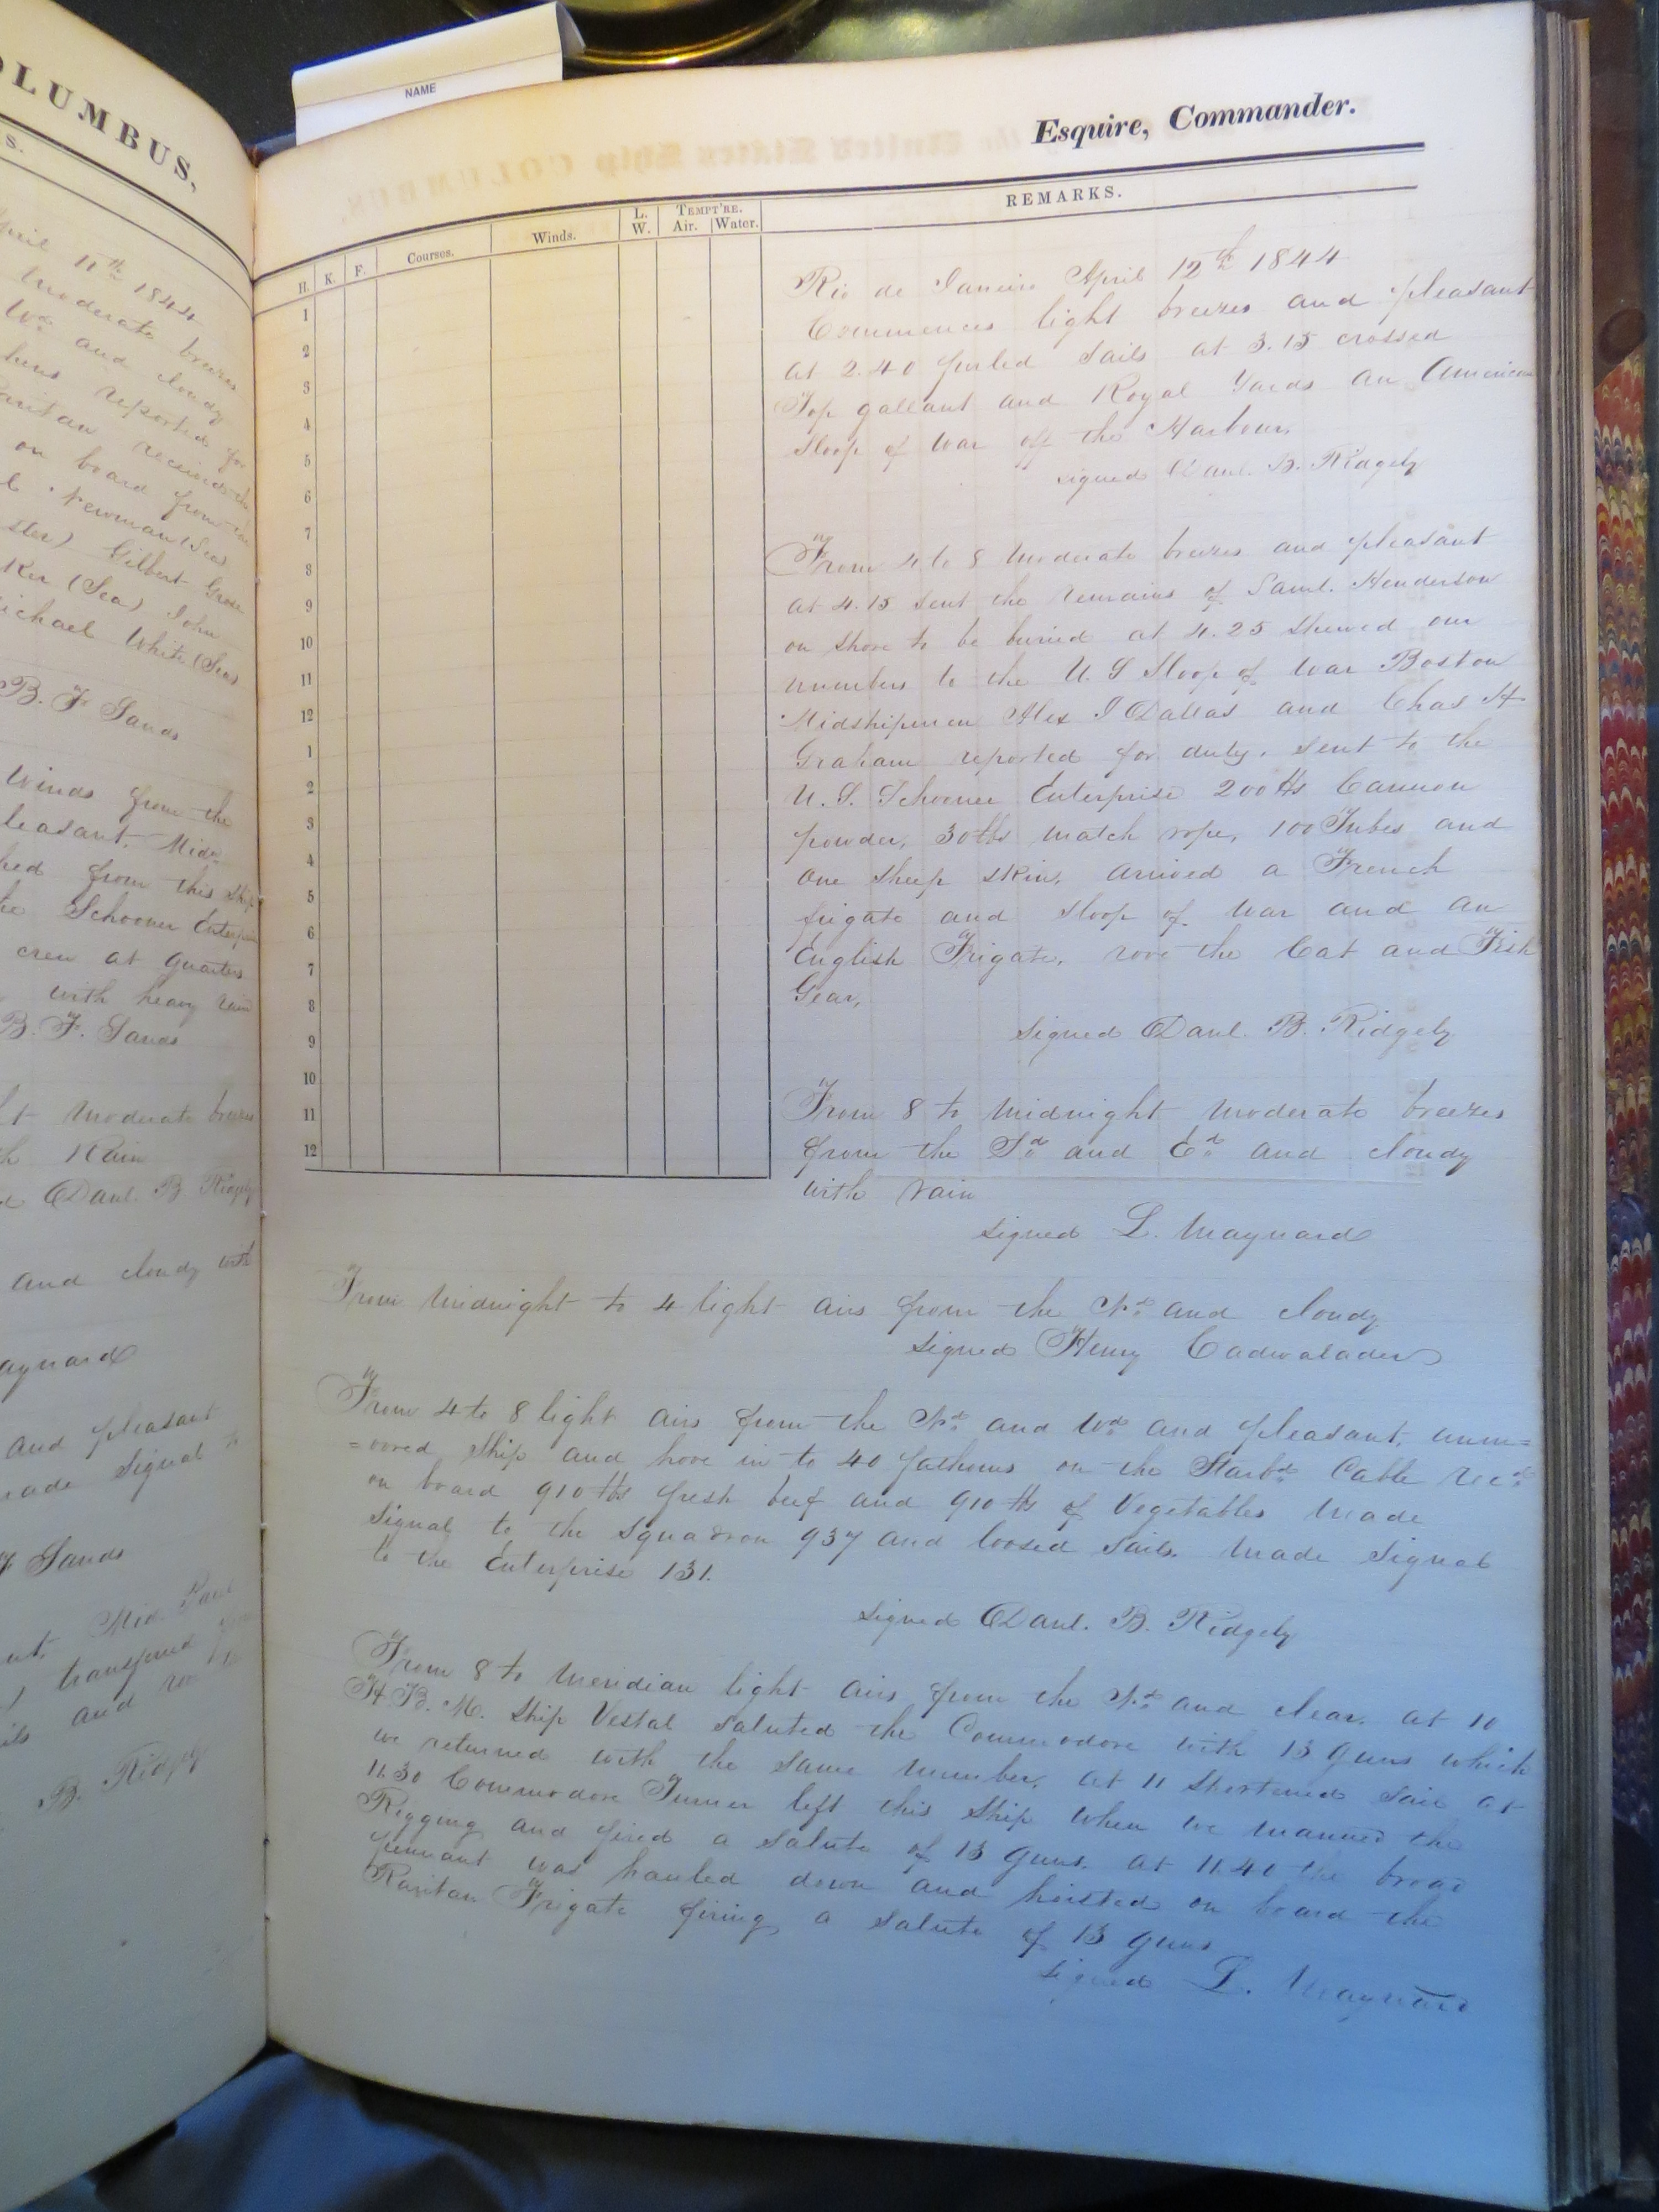 OLUMBUS,
S.
April 11th 1844
moderate breezes
Wd and cloudy
reported for
Raritan received the
on board from
Newman (Sea)
ster) Gilbert Grose
Ker (Sea) John
ichael White (Sea)
B. F. Sands
Winds from the
leasant, Midn
hed from this ship
the Schooner Enterprise
crew at quarters
with heavy rain
B. F. Sands
moderate breezes
Rain
Danl. B Ridgely
and cloudy with
aynard
and pleasant
made signal to
F Sands
Mid
transferred from
ils and
B. Ridgely
NAME
Esquire, Commander.
H. K. F. Courses. Winds. L. W. TEMPT'RE. Air. Water. REMARKS.
1
2
3
4
5
6
7
8
9
10
11
12
1
2
3
4
5
6
7
8
9
10
11
12
Rio de Janeiro April 12th 1844
Commences light breezes and pleasant
at 2.40 furled sails at 3.15 crossed
Top gallant and Royal Yards an American
sloop of war off the Harbour,
signed Danl. B. Ridgely
From 4 to 8 moderate breezes and pleasant
at 4.15 sent the remains of Saml. Henderson
on shore to be buried at 4.25 shewed our
numbers to the U. S Sloop of War Boston
Midshipmen Alex J Dallas and Chas H
Graham reported for duty, sent to the
U. S. Schooner Enterprise 200 lbs Cannon
powder, 30 lbs match rope, 100 Tubes and
one sheep skin, arrived a French
frigate and sloop of war and an
English Frigate, rove the Cat and Fish
Gear,
signed Danl. B. Ridgely
From 8 to midnight moderate breezes
from the Sd and Ed and cloudy
with rain
signed L. Maynard
From midnight to 4 light airs from the Nd and cloudy
signed Henry Cadwalader
From 4 to 8 light airs from the Nd and Wd and pleasant, unm=
=oored ship and hove in to 40 fathoms on the Starbd Cable recd
on board 910 lbs fresh beef and 910 lbs of Vegetables made
signal to the squadron 937 and loosed sails. made signal
to the Enterprise 131.
signed Danl. B. Ridgely
From 8 to meridian light airs from the Nd and clear. at 10
H. B. M. Ship Vestal saluted the Commodore with 13 guns which
we returned with the same number, at 11 shortened sail at
11.30 Commodore Turner left this ship when we manned the
Rigging and fired a salute of 13 guns. at 11.40 the broad
pennant was hauled down and hoisted on board the
Raritan Frigate firing a salute of 13 guns
signed L. Maynard